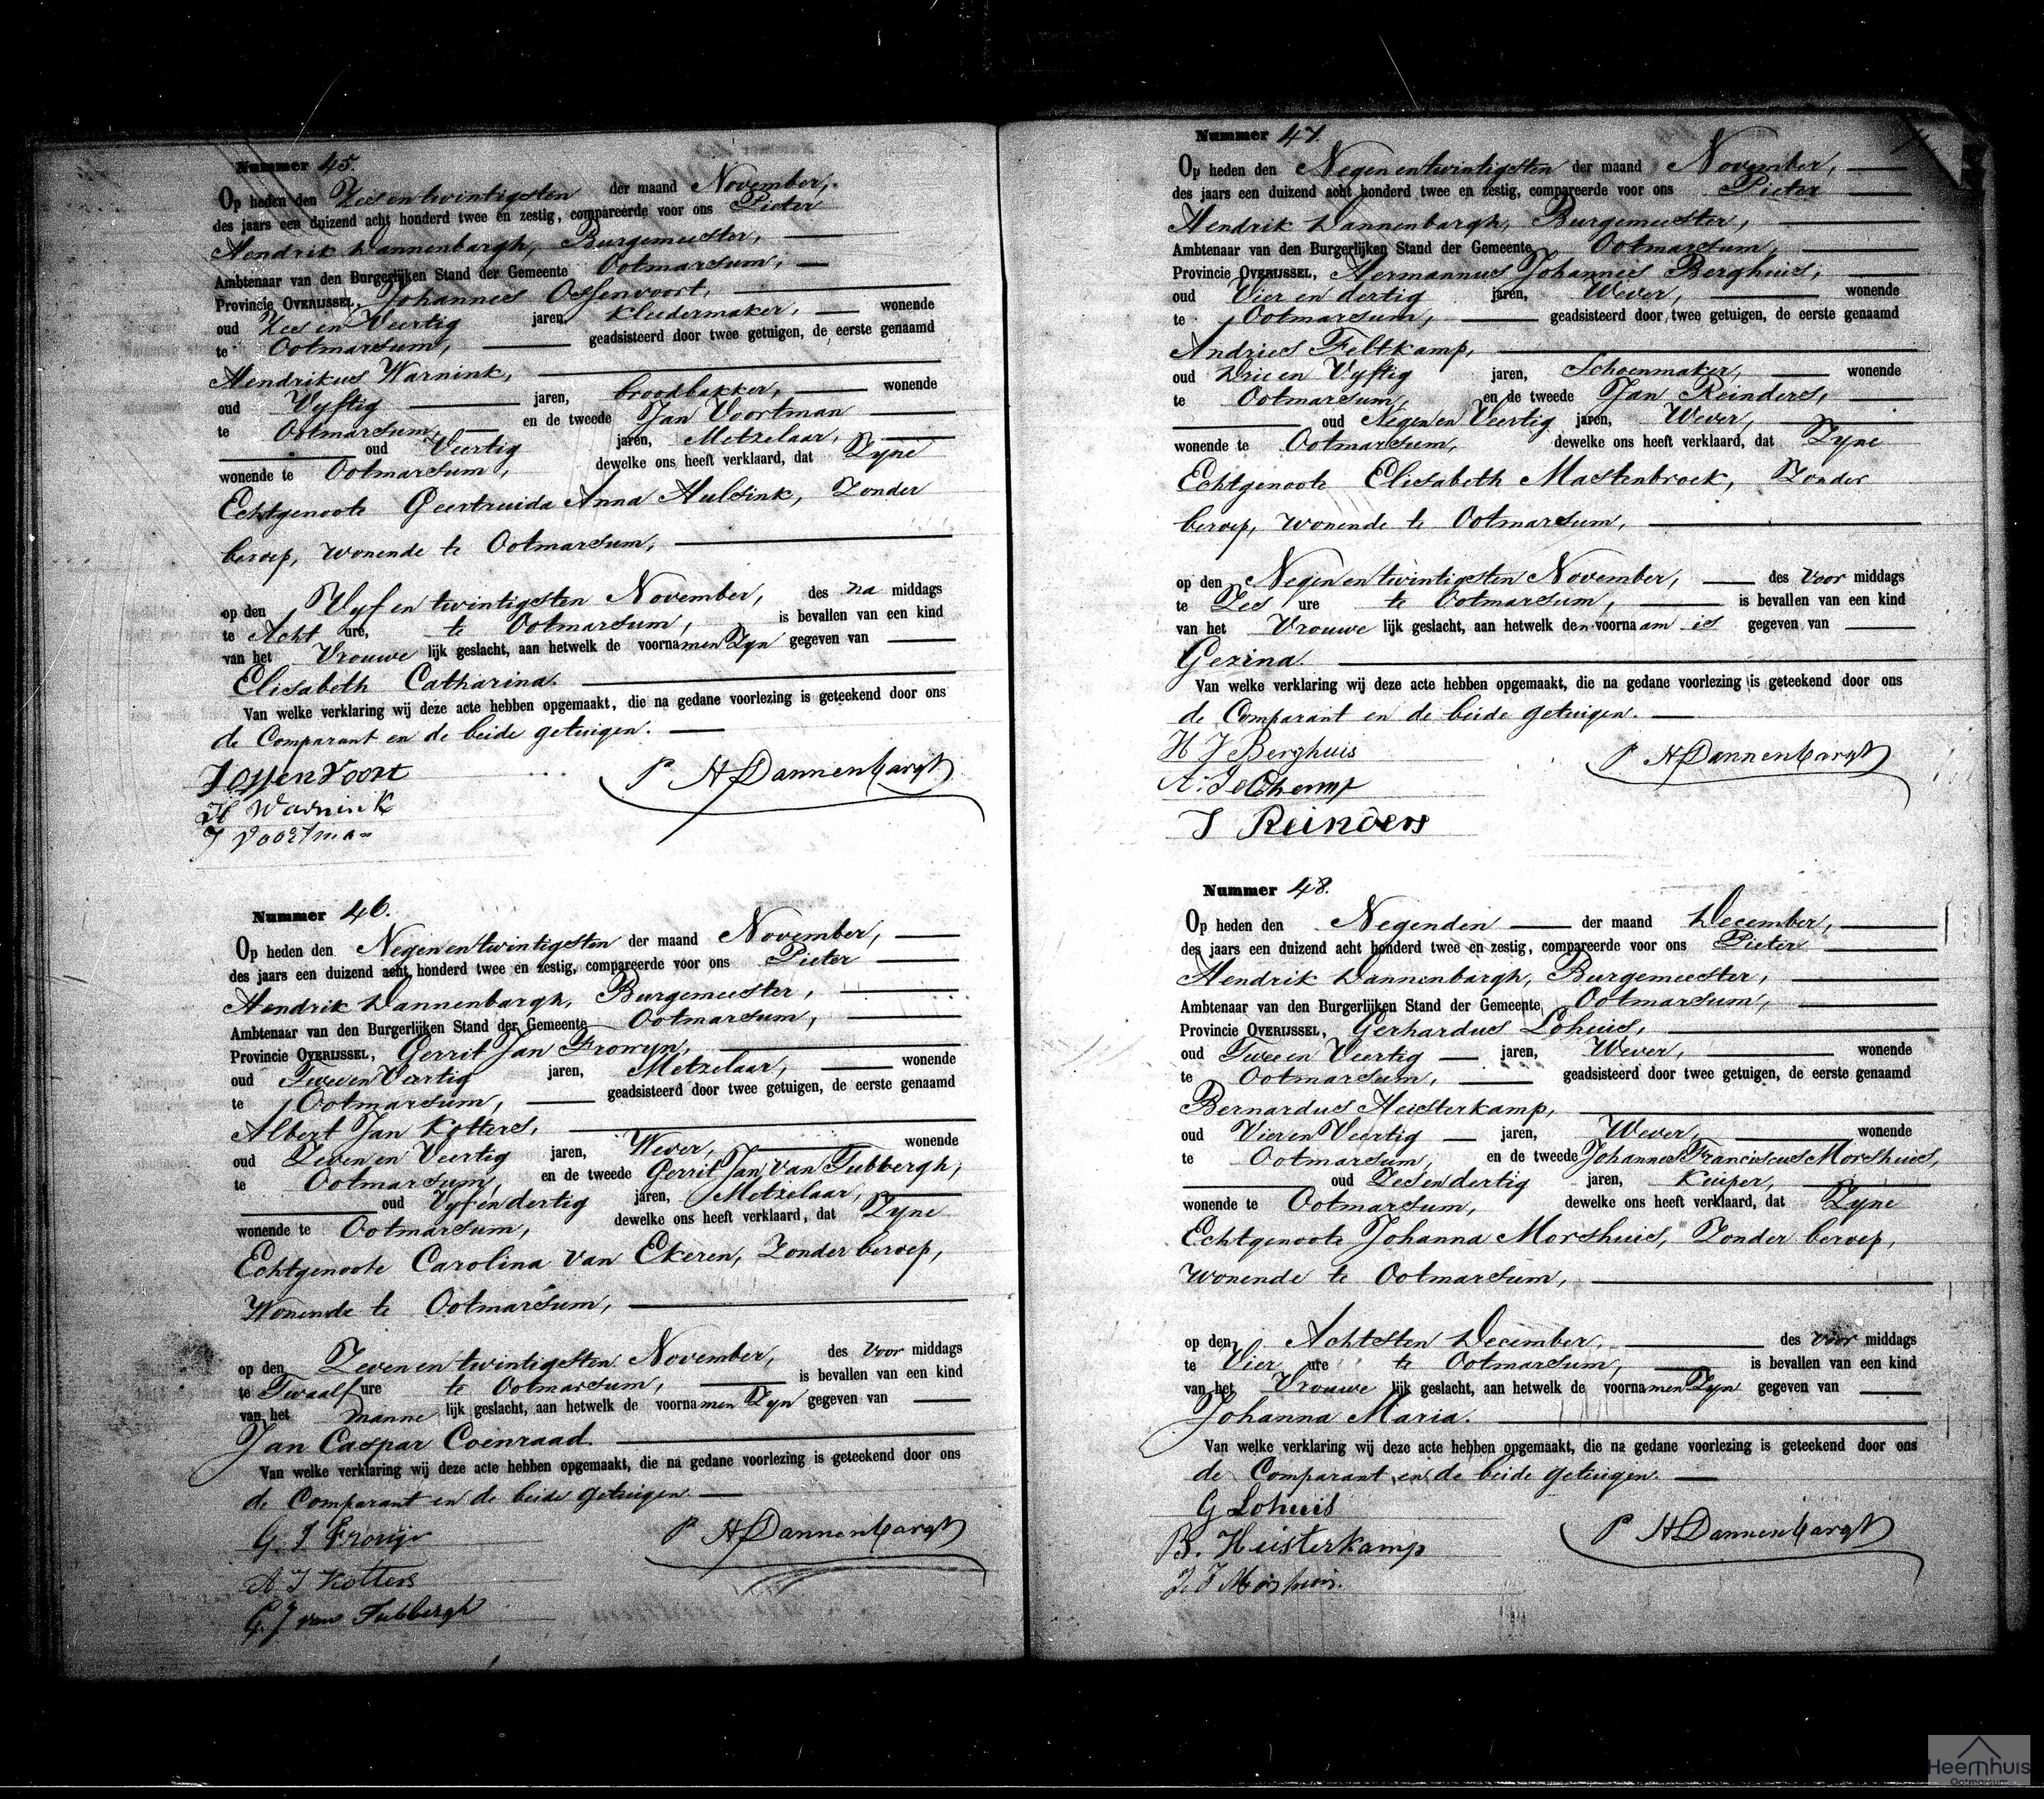 Nummer 45.
Op heden den Zesentwintigsten der maand November,
des jaars een duizend acht honderd twee en zestig, compareerde voor ons Pieter
Hendrik Dannenbargh, Burgemeester,
Ambtenaar van den Burgerlijken Stand der Gemeente Ootmarsum,
Provincie OVERIJSSEL, Johannes Ossenvoort,
oud Zes en Veertig jaren, Kleedermaker, wonende
te Ootmarsum, geadsisteerd door twee getuigen, de eerste genaamd
Hendrikus Warnink,
oud Vyftig jaren, broodbakker, wonende
te Ootmarsum, en de tweede Jan Voortman
oud Veertig jaren, Metzelaar,
wonende te Ootmarsum, dewelke ons heeft verklaard, dat Zyne
Echtgenoote Geertruida Anna Hulsink, Zonder
beroep, wonende te Ootmarsum,
op den Vyf en twintigsten November, des na middags
te Acht ure, te Ootmarsum, is bevallen van een kind
van het Vrouwe lijk geslacht, aan hetwelk de voornamen Zyn gegeven van
Elisabeth Catharina.
Van welke verklaring wij deze acte hebben opgemaakt, die na gedane voorlezing is geteekend door ons
de Comparant en de beide getuigen.
J Ossenvoort
P H Dannenbargh
H Warnink
J Voortman
Nummer 46.
Op heden den Negenentwintigsten der maand November,
des jaars een duizend acht honderd twee en zestig, compareerde voor ons Pieter
Hendrik Dannenbargh, Burgemeester,
Ambtenaar van den Burgerlijken Stand der Gemeente Ootmarsum,
Provincie OVERIJSSEL, Gerrit Jan Frowyn,
oud Twee en Veertig jaren, Metzelaar, wonende
te Ootmarsum, geadsisteerd door twee getuigen, de eerste genaamd
Albert Jan Kotters,
oud Zeven en Veertig jaren, Wever, wonende
te Ootmarsum, en de tweede Gerrit Jan van Tubbergh,
oud Vyf en dertig jaren, Metzelaar,
wonende te Ootmarsum, dewelke ons heeft verklaard, dat Zyne
Echtgenoote Carolina van Ekeren, Zonder beroep,
Wonende te Ootmarsum,
op den Zeven en twintigsten November, des voor middags
te Twaalf ure te Ootmarsum, is bevallen van een kind
van het manne lijk geslacht, aan hetwelk de voornamen Zyn gegeven van
Jan Caspar Coenraad.
Van welke verklaring wij deze acte hebben opgemaakt, die na gedane voorlezing is geteekend door ons
de Comparant en de beide getuigen
G. J Frowijn
P H Dannenbargh
A J Kotters
G. J van Tubbergh
Nummer 47.
Op heden den Negen entwintigsten der maand November,
des jaars een duizend acht honderd twee en zestig, compareerde voor ons Pieter
Hendrik Dannenbargh, Burgemeester,
Ambtenaar van den Burgerlijken Stand der Gemeente Ootmarsum,
Provincie OVERIJSSEL, Hermannus Johannes Berghuis,
oud Vier en dertig jaren, Wever, wonende
te Ootmarsum, geadsisteerd door twee getuigen, de eerste genaamd
Andries Feltkamp,
oud Drie en Vyftig jaren, Schoenmaker, wonende
te Ootmarsum, en de tweede Jan Reinders,
oud Negen en Veertig jaren, Wever,
wonende te Ootmarsum, dewelke ons heeft verklaard, dat Zyne
Echtgenoote Elisabeth Mastenbroek, Zonder
beroep, wonende te Ootmarsum,
op den Negen en twintigsten November, des Voor middags
te Zes ure te Ootmarsum, is bevallen van een kind
van het Vrouwe lijk geslacht, aan hetwelk den voornaam is gegeven van
Gezina.
Van welke verklaring wij deze acte hebben opgemaakt, die na gedane voorlezing is geteekend door ons
de Comparant en de beide getuigen.
H J Berghuis
P H Dannenbargh
J Reinders
Nummer 48.
Op heden den Negenden der maand December,
des jaars een duizend acht honderd twee en zestig, compareerde voor ons Pieter
Hendrik Dannenbargh, Burgemeester,
Ambtenaar van den Burgerlijken Stand der Gemeente Ootmarsum,
Provincie OVERIJSSEL, Gerhardus Lohuis,
oud Twee en Veertig jaren, Wever, wonende
te Ootmarsum, geadsisteerd door twee getuigen, de eerste genaamd
Bernardus Heisterkamp,
oud Vier en Veertig jaren, Wever, wonende
te Ootmarsum, en de tweede Johannes Franciscus Morshuis,
oud Zes en dertig jaren, Kuiper,
wonende te Ootmarsum, dewelke ons heeft verklaard, dat Zyne
Echtgenoote Johanna Morshuis, Zonder beroep,
wonende te Ootmarsum,
op den Achtsten December, des voor middags
te Vier ure te Ootmarsum, is bevallen van een kind
van het Vrouwe lijk geslacht, aan hetwelk de voornamen Zyn gegeven van
Johanna Maria.
Van welke verklaring wij deze acte hebben opgemaakt, die na gedane voorlezing is geteekend door ons
de Comparant en de beide getuigen.
G Lohuis
P H Dannenbargh
B. Heisterkamp
J. F Morshuis.
Heemhuis
Ootmarsum